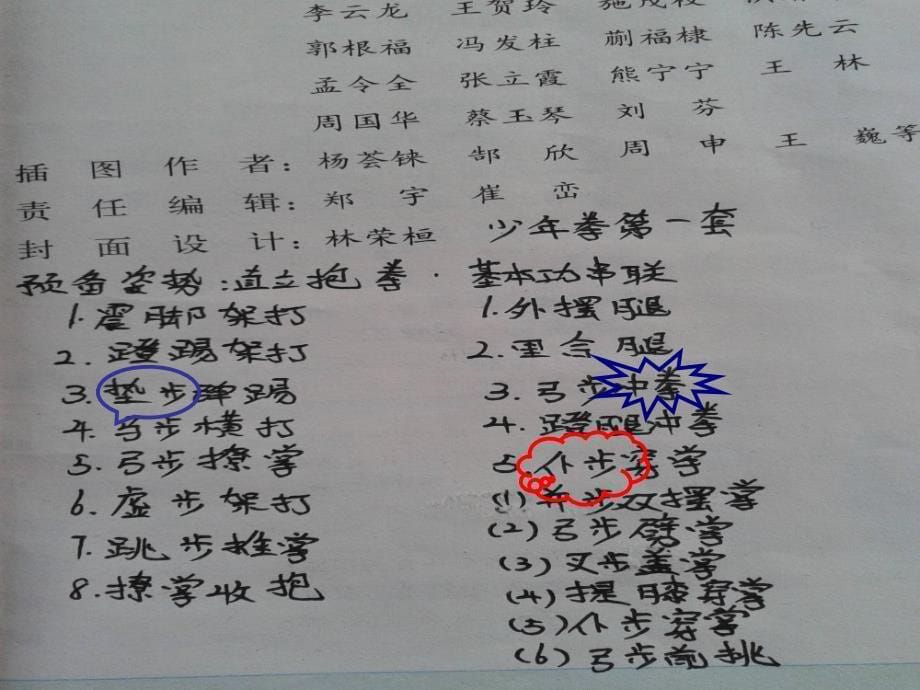 李云龙 王贺玲 施茂枝
郭根福 冯发柱 蒯福棣 陈先云
孟令全 张立霞 熊宁宁 王 林
周国华 蔡玉琴 刘 芬
插 图 作 者：杨荟铼 郜 欣 周 申 王 巍等
责 任 编 辑：郑 宇 崔 峦
封 面 设 计：林荣桓
少年拳第一套
预备姿势:直立抱拳.
1.震脚架打
2.蹬踢架打
3.垫步弹踢
4.马步横打
5.弓步撩掌
6.虚步架打
7.跳步推掌
8.撩掌收抱
基本功串联
1.外摆腿
2.里合腿
3.弓步冲拳
4.蹬腿冲拳
5.仆步穿掌
(1)并步双摆掌
(2)弓步劈掌
(3)叉步盖掌
(4)提膝穿掌
(5)仆步穿掌
(6)弓步前挑